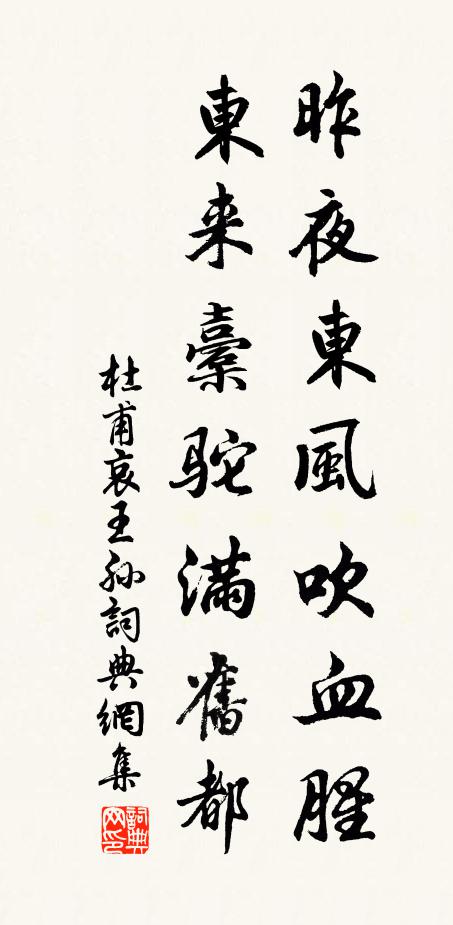 昨夜東風吹血腥
東来橐駝滿舊都
杜甫哀王孫詞典網集
詞典網印